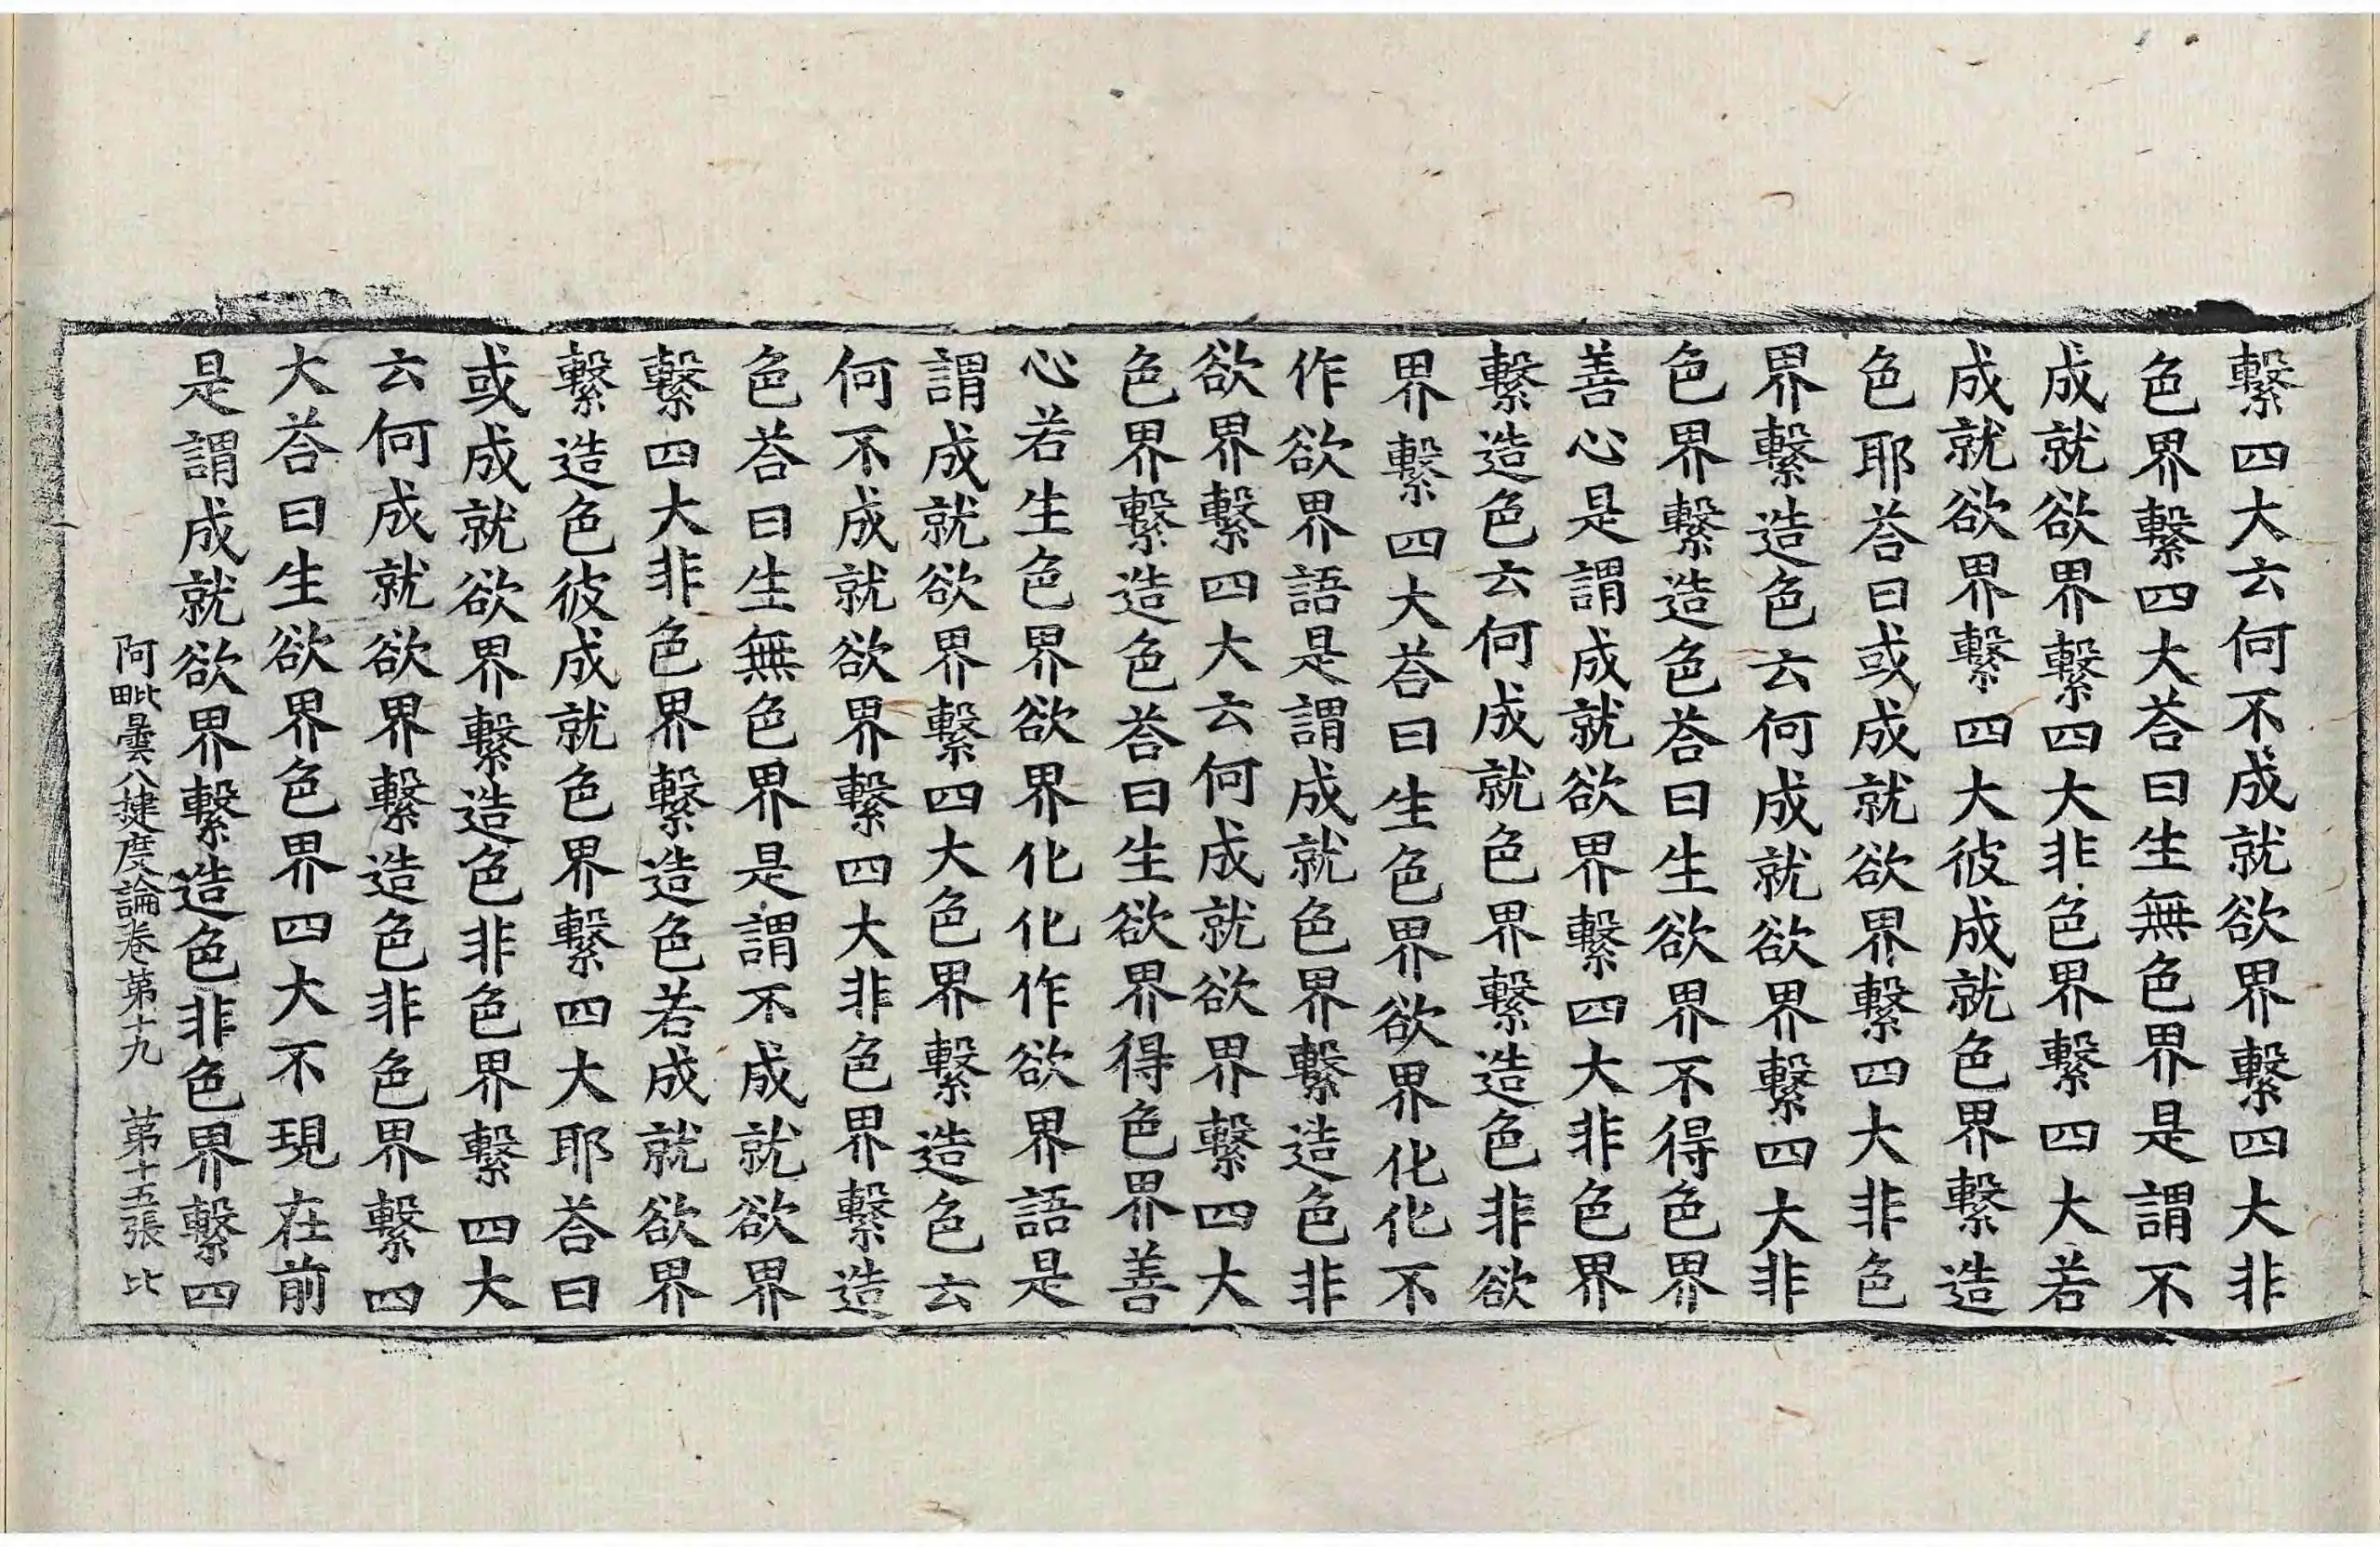 繫四大云何不成就欲界繫四大非
色界繫四大荅曰生無色界是謂不
成就欲界繫四大非色界繫四大若
成就欲界繫四大彼成就色界繫造
色耶荅曰或成就欲界繫四大非色
界繫造色云何成就欲界繫四大非
色界繫造色荅曰生欲界不得色界
善心是謂成就欲界繫四大非色界
繫造色云何成就色界繫造色非欲
界繫四大荅曰生色界欲界化化不
作欲界語是謂成就色界繫造色非
欲界繫四大云何成就欲界繫四大
色界繫造色荅曰生欲界得色界善
心若生色界欲界化化作欲界語是
謂成就欲界繫四大色界繫造色云
何不成就欲界繫四大非色界繫造
色荅曰生無色界是謂不成就欲界
繫四大非色界繫造色若成就欲界
繫造色彼成就色界繫四大耶荅曰
或成就欲界繫造色非色界繫四大
云何成就欲界繫造色非色界繫四
大荅曰生欲界色界四大不現在前
是謂成就欲界繫造色非色界繫四
阿毗曇八揵度論卷第十九 第十五張 比